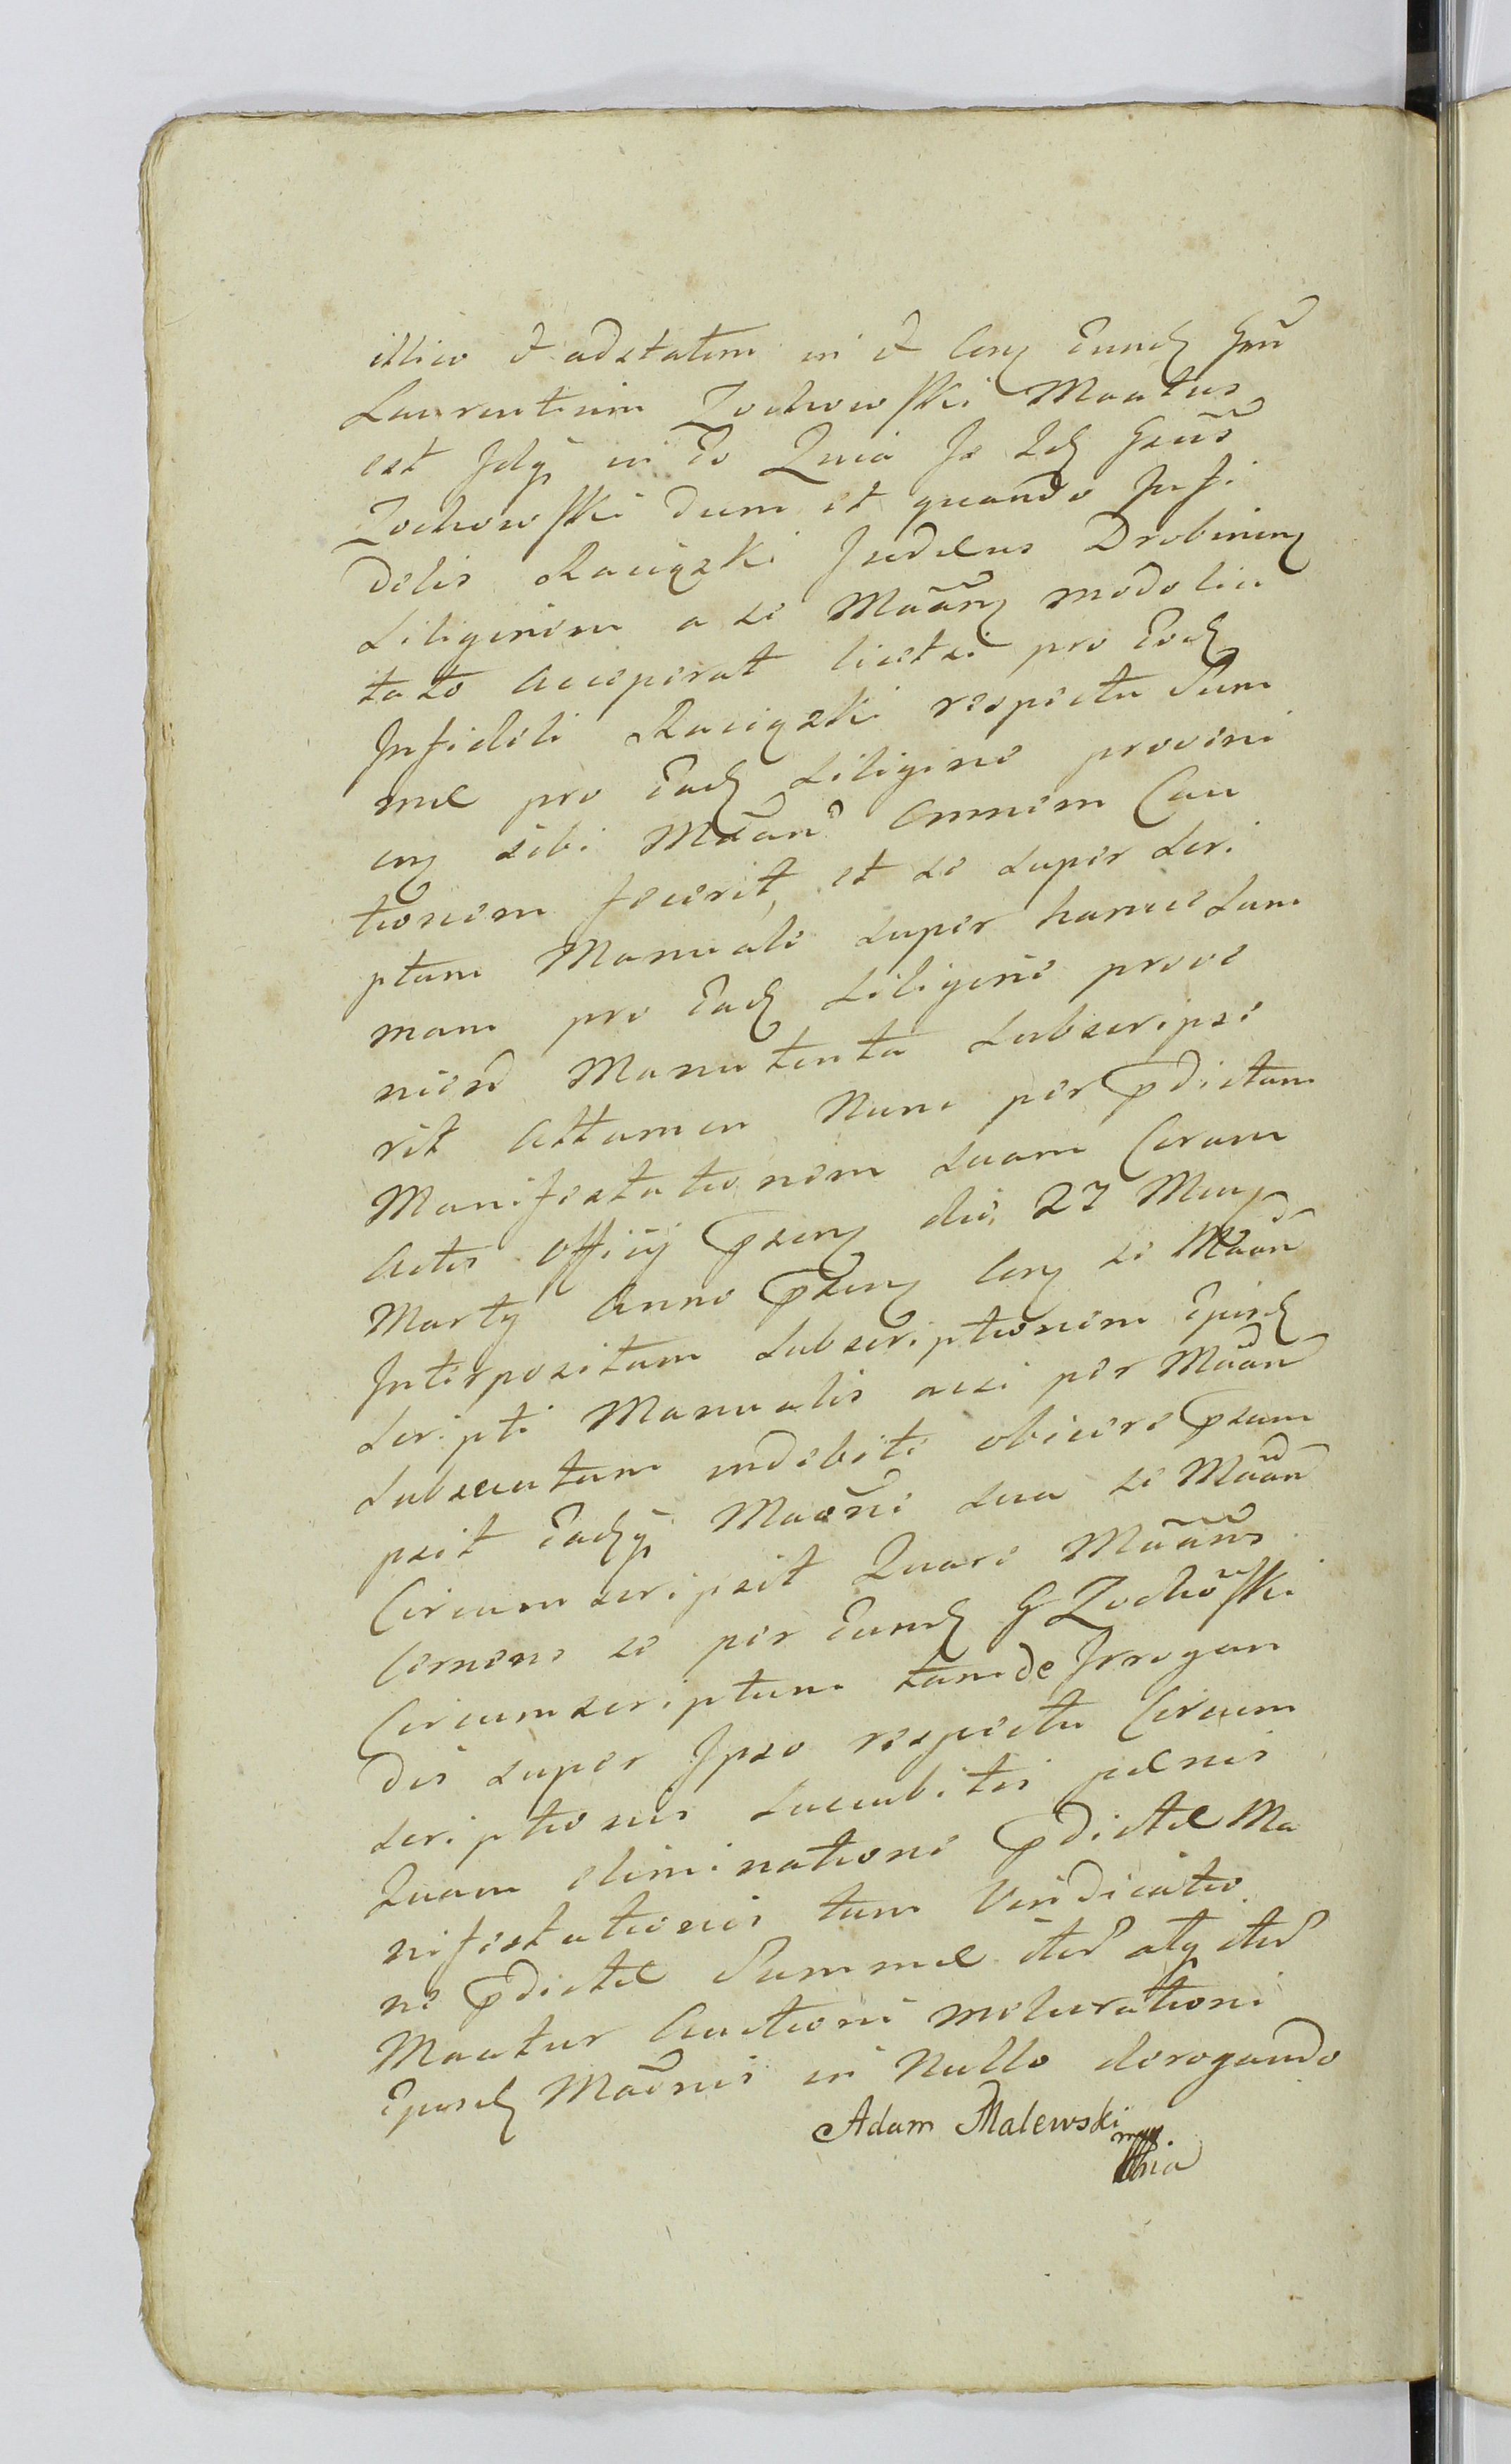 illico et adstatim in et Cong Eund Gnū
Laurentium Zochowski Maatus
est Idq in Eo Quia Is Id Gnūs
Zochowski dum et quando Infi
delis Raciązki Judæus Drobinen
Siligenem a se Maāng modo lici
tato acceperat licet se pro Eod
Infideli Raciązki respectu Sum
mæ pro Ead Siligine proveni
eng sibi Māan Omnem Cau
tionem fecerit, et se super scri
ptum Manuale super hance Sum
mam pro Ead Siligine prove
niend Manutenta Subscripse
rit Attamen Nunc per pdictam
Manifestationem suam Coram
Actis Officij pseng die 27 Mens
Martij Anno pseng Cong se Māan
Interpositam Subscriptionem Ejusd
Scripti Manualis acsi per Māan
Subsecutam indebite obiicere psum
psit Eadq Maōne sua se Māan
Circumscripsit Quare Māans
Cernens se per Eund G Zochōski
Circumscriptum tam de Irrogan
dis super Ipso respectu Circum
scriptionis Succubitis pænis
Quam eliminatione pdictæ Ma
nifestationis tum Vindicatio
ne pdictæ Summæ itd atq itd
Maatur Auctione meliorationi
Ejusd Maōnis in Nullo derogando
Adam Malewski
mpp.